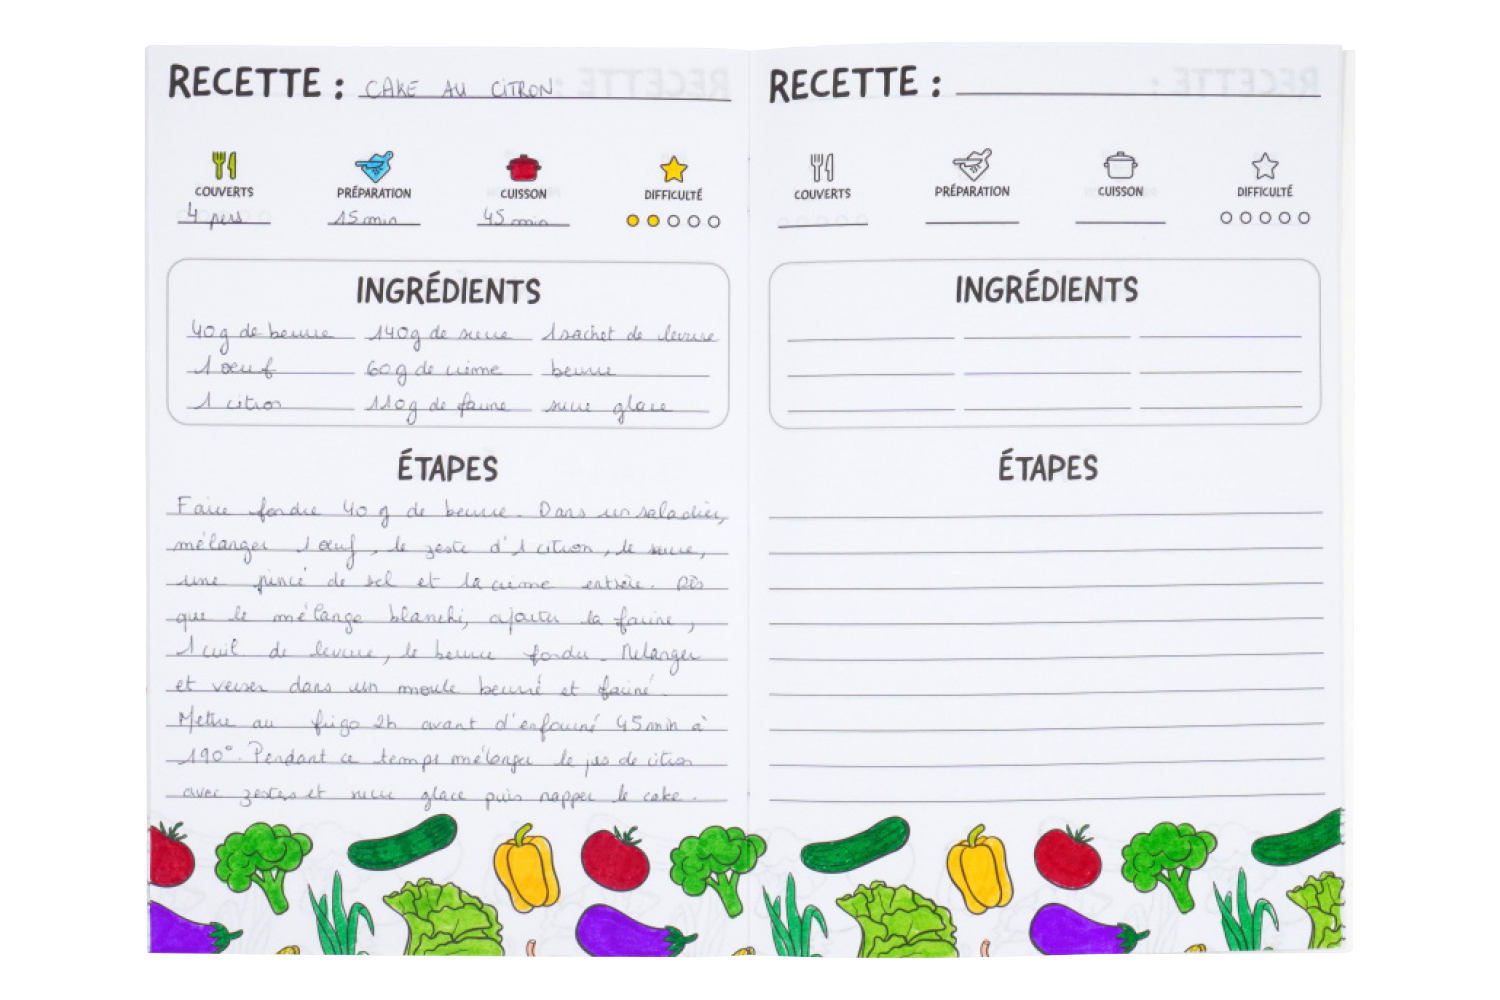 RECETTE : CAKE AU CITRON
COUVERTS PRÉPARATION CUISSON DIFFICULTÉ
4 pers 15 min 45 min
INGRÉDIENTS
40g de beurre 140g de sucre 1 sachet de levure
1 œuf 60g de crème beurre
1 citron 110g de farine sucre glace
ÉTAPES
Faire fondre 40 g de beurre. Dans un saladier,
mélanger 1 œuf, le zeste d'1 citron, le sucre,
une pincé de sel et la crème entière. Dès
que le mélange blanchi, ajouter la farine,
1 cuil de levure, le beurre fondu. Mélanger
et verser dans un moule beurré et fariné.
Mettre au frigo 2h avant d'enfourné 45min à
190°. Pendant ce temps mélanger le jus de citron
avec zestes et sucre glace puis napper le cake.
RECETTE :
COUVERTS PRÉPARATION CUISSON DIFFICULTÉ
INGRÉDIENTS
ÉTAPES